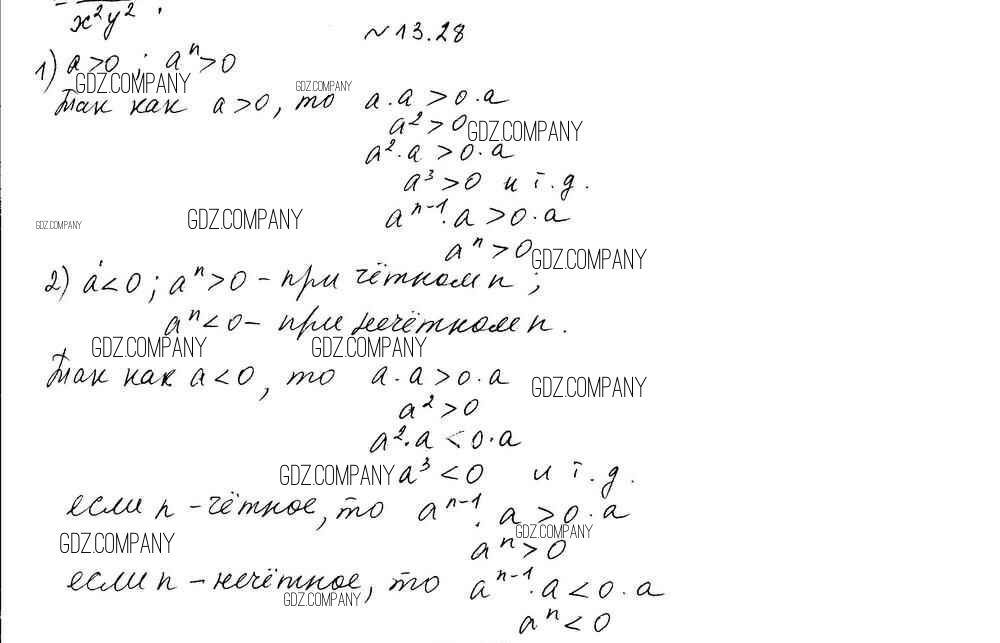 x²y² .
№13.28
1) a>0 ; aⁿ>0
GDZ.COMPANY GDZ.COMPANY
Так как a>0, то a·a>0·a
a²>0 GDZ.COMPANY
a²·a>0·a
a³>0 и т.д.
GDZ.COMPANY GDZ.COMPANY aⁿ⁻¹·a>0·a
aⁿ>0 GDZ.COMPANY
2) a<0; aⁿ>0 – при чётном n ;
aⁿ<0 – при нечётном n.
GDZ.COMPANY GDZ.COMPANY
Так как a<0, то a·a>0·a GDZ.COMPANY
a²>0
a²·a<0·a
GDZ.COMPANY a³<0 и т.д.
если n – чётное, то aⁿ⁻¹·a>0·a
GDZ.COMPANY
GDZ.COMPANY aⁿ>0
если n – нечётное, то aⁿ⁻¹·a<0·a
GDZ.COMPANY
aⁿ<0